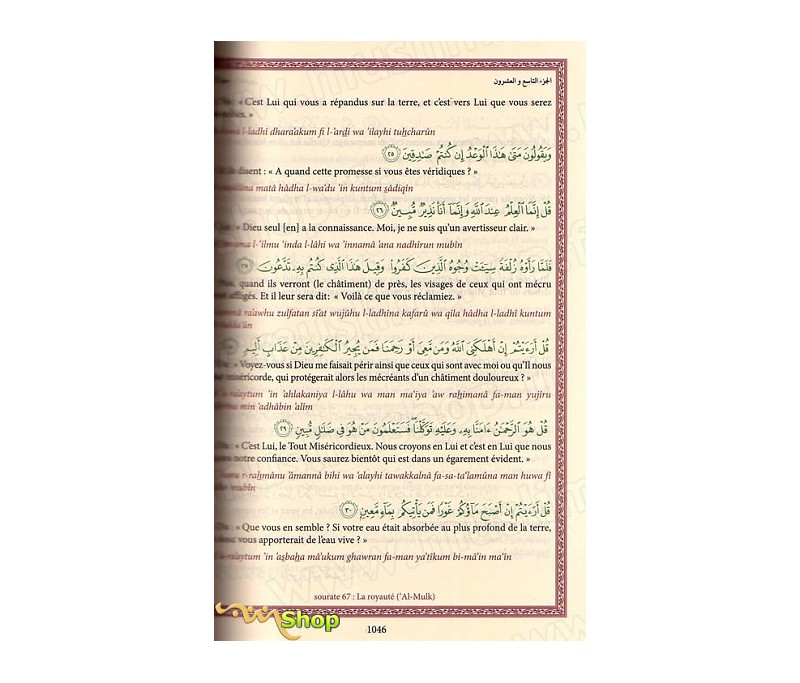 الجزء التاسع و العشرون
: « C'est Lui qui vous a répandus sur la terre, et c'est vers Lui que vous serez
. »
l-ladhî dhara'akum fi l-'arḍi wa 'ilayhi tuḥcharûn
وَيَقُولُونَ مَتَىٰ هَـٰذَا ٱلْوَعْدُ إِن كُنتُمْ صَـٰدِقِينَ ٢٥
disent : « A quand cette promesse si vous êtes véridiques ? »
matâ hâdha l-wa'du 'in kuntum ṣâdiqîn
قُلْ إِنَّمَا ٱلْعِلْمُ عِندَ ٱللَّهِ وَإِنَّمَآ أَنَا۠ نَذِيرٌ مُّبِينٌ ٢٦
: « Dieu seul [en] a la connaissance. Moi, je ne suis qu'un avertisseur clair. »
l-'ilmu 'inda l-lâhi wa 'innamâ 'ana nadhîrun mubîn
فَلَمَّا رَأَوْهُ زُلْفَةً سِيٓـَٔتْ وُجُوهُ ٱلَّذِينَ كَفَرُوا۟ وَقِيلَ هَـٰذَا ٱلَّذِى كُنتُم بِهِۦ تَدَّعُونَ ٢٧
quand ils verront (le châtiment) de près, les visages de ceux qui ont mécru
affligés. Et il leur sera dit: « Voilà ce que vous réclamiez. »
ra'awhu zulfatan sî'at wujûhu l-ladhîna kafarû wa qîla hâdha l-ladhî kuntum
قُلْ أَرَءَيْتُمْ إِنْ أَهْلَكَنِىَ ٱللَّهُ وَمَن مَّعِىَ أَوْ رَحِمَنَا فَمَن يُجِيرُ ٱلْكَـٰفِرِينَ مِنْ عَذَابٍ أَلِيمٍ
: « Voyez-vous si Dieu me faisait périr ainsi que ceux qui sont avec moi ou qu'Il nous
miséricorde, qui protégerait alors les mécréants d'un châtiment douloureux ? »
'in 'ahlakaniya l-lâhu wa man ma'iya 'aw raḥimanâ fa-man yujîru
min 'adhâbin 'alîm
قُلْ هُوَ ٱلرَّحْمَـٰنُ ءَامَنَّا بِهِۦ وَعَلَيْهِ تَوَكَّلْنَا فَسَتَعْلَمُونَ مَنْ هُوَ فِى ضَلَـٰلٍ مُّبِينٍ ٢٩
: « C'est Lui, le Tout Miséricordieux. Nous croyons en Lui et c'est en Lui que nous
notre confiance. Vous saurez bientôt qui est dans un égarement évident. »
r-raḥmânu 'âmannâ bihi wa 'alayhi tawakkalnâ fa-sa-ta'lamûna man huwa fî
mubîn
قُلْ أَرَءَيْتُمْ إِنْ أَصْبَحَ مَآؤُكُمْ غَوْرًا فَمَن يَأْتِيكُم بِمَآءٍ مَّعِينٍ ٣٠
: « Que vous en semble ? Si votre eau était absorbée au plus profond de la terre,
vous apporterait de l'eau vive ? »
'in 'aṣbaḥa mâ'ukum ghawran fa-man ya'tîkum bi-mâ'in ma'în
sourate 67 : La royauté ('Al-Mulk)
Shop
1046